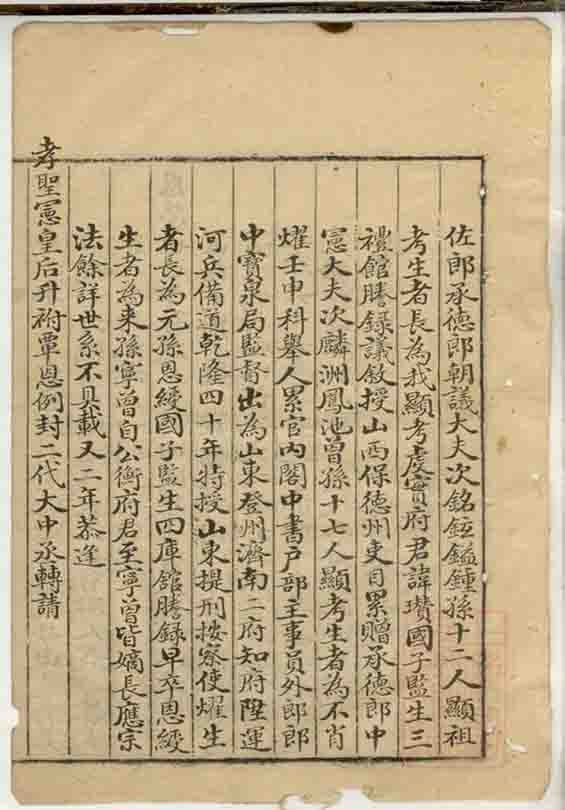 佐郎承德郎朝議大夫次銘鈺鎰鍾孫十二人顯祖
考生者長為我顯考虔實府君諱瓚國子監生三
禮館謄錄議敘授山西保德州吏目累贈承德郎中
憲大夫次麟洲鳳池曾孫十七人顯考生者為不肖
燿壬申科舉人累官內閣中書戶部主事員外郎郎
中寶泉局監督出為山東登州濟南二府知府陞運
河兵備道乾隆四十年特授山東提刑按察使燿生
者長為元孫恩綬國子監生四庫館謄錄早卒恩綬
生者為来孫寧曾自公衡府君至寧曾皆嫡長應宗
法餘詳世系不具載又二年恭逢
孝聖憲皇后升祔覃恩例封二代大中丞轉請